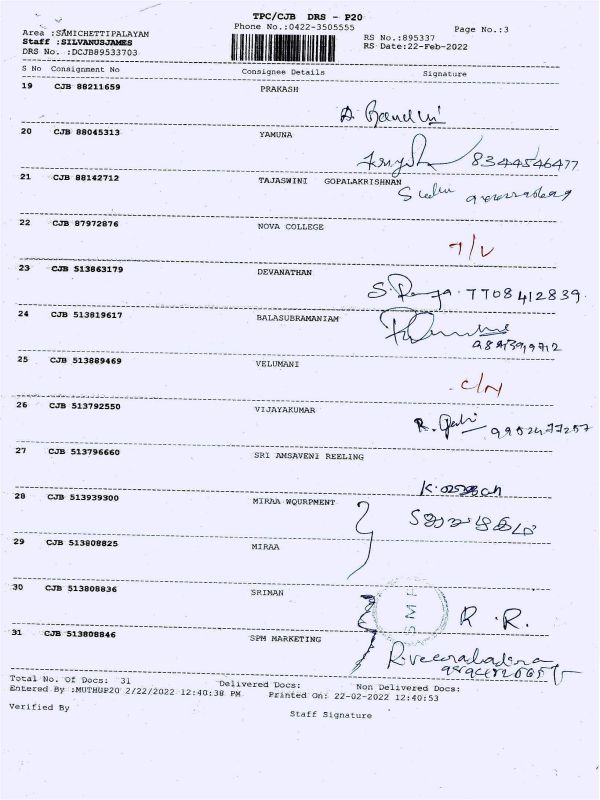 TPC/CJB DRS - P20
Phone No.:0422-3505555
Page No.:3
Area :SAMICHETTIPALAYAM
Staff :SILVANUSJAMES
DRS No. :DCJB89533703
RS No.:895337
RS Date:22-Feb-2022
S No Consignment No Consignee Details Signature
19 CJB 88211659 PRAKASH
20 CJB 88045313 YAMUNA
8344546477
21 CJB 88142712 TAJASWINI GOPALAKRISHNAN
22 CJB 87972876 NOVA COLLEGE
23 CJB 513863179 DEVANATHAN
7708412839
24 CJB 513819617 BALASUBRAMANIAM
25 CJB 513889469 VELUMANI
C/N
26 CJB 513792550 VIJAYAKUMAR
27 CJB 513796660 SRI AMSAVENI REELING
28 CJB 513939300 MIRAA WQURPMENT
29 CJB 513808825 MIRAA
30 CJB 513808836 SRIMAN
SMP
R.R.
31 CJB 513808846 SPM MARKETING
Total No. Of Docs: 31 Delivered Docs: Non Delivered Docs:
Entered By :MUTHUP20 2/22/2022 12:40:38 PM Printed On: 22-02-2022 12:40:53
Verified By
Staff Signature